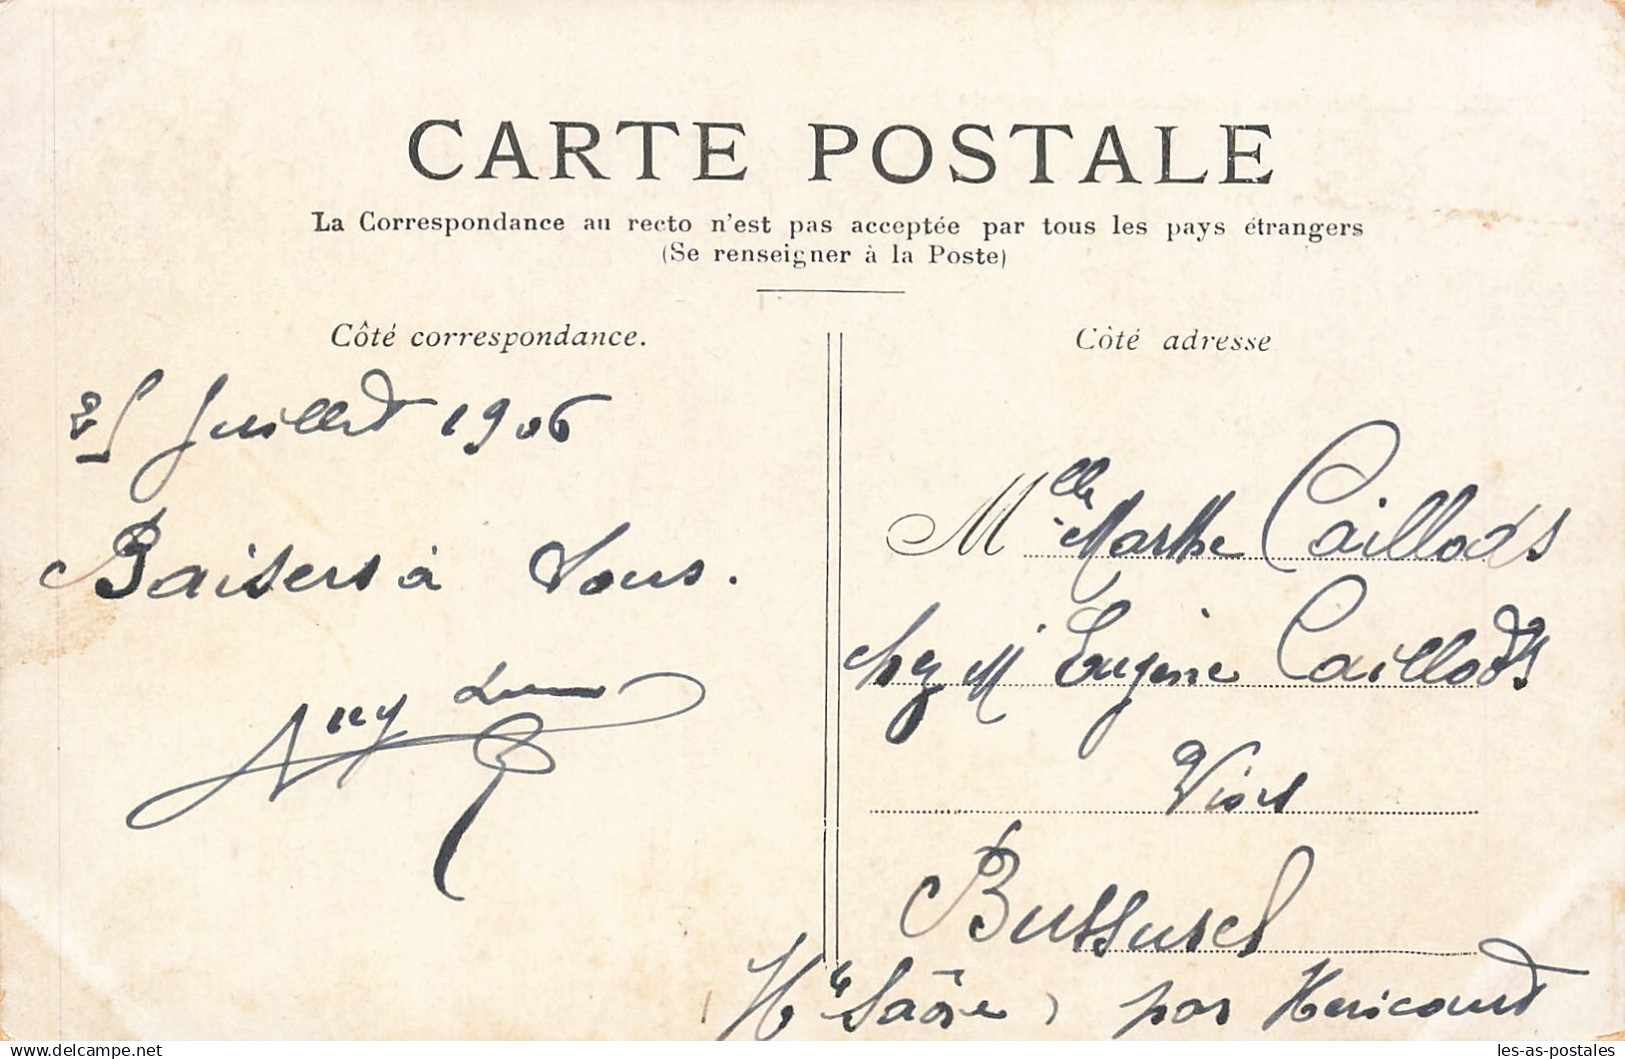 CARTE POSTALE
La Correspondance au recto n'est pas acceptée par tous les pays étrangers
(Se renseigner à la Poste)
Côté correspondance.
25 Juillet 1906
Baisers à tous.
Côté adresse
Mlle Marthe Caillods
chez Mr Eugène Caillods
Bussurel
Hte Saône, par Héricourt
© les-as-postales
les-as-postales